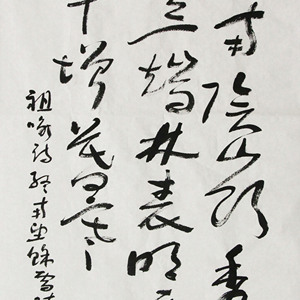 南陰岭秀
云端林表明
中增暮寒
祖咏诗终南望餘雪